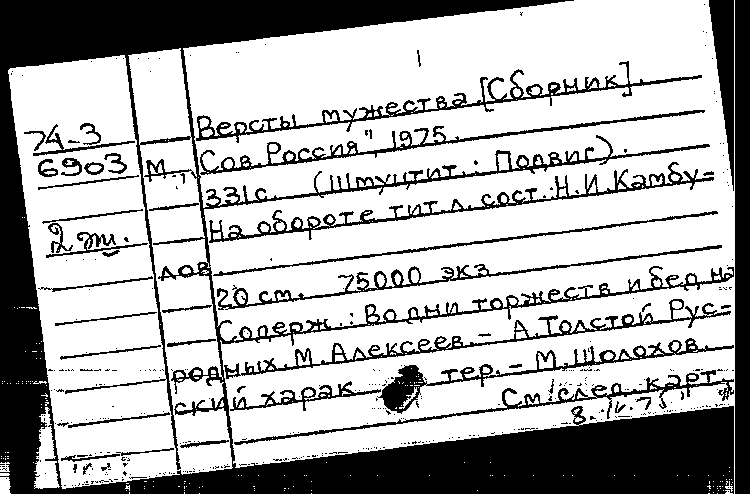 Версты мужества. [Сборник].
74-3
6903
М., „Сов. Россия", 1975.
331с. (Шмуцтит.: Подвиг).
2 эк.
На обороте тит. л. сост. Н.И.Камбу=
лов.
20 см. 75000 экз
Содерж.: Во дни торжеств и бед на
родных. М. Алексеев. – А.Толстой Рус=
ский харак тер. – М.Шолохов.
См. след. карт.
8.IV.75